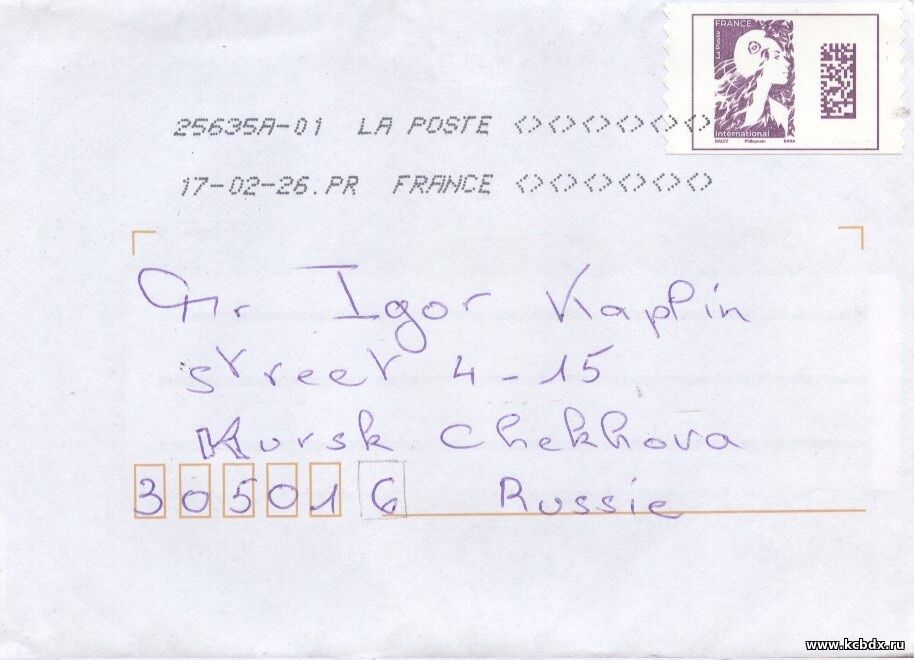 FRANCE
La Poste
International
BALEZ Philaposte BABA
25635A-01 LA POSTE <><><><><><>
17-02-26.PR FRANCE <><><><><><>
Mr Igor Kaplin
street 4-15
Kursk Chekhova
305016 Russie
www.kcbdx.ru